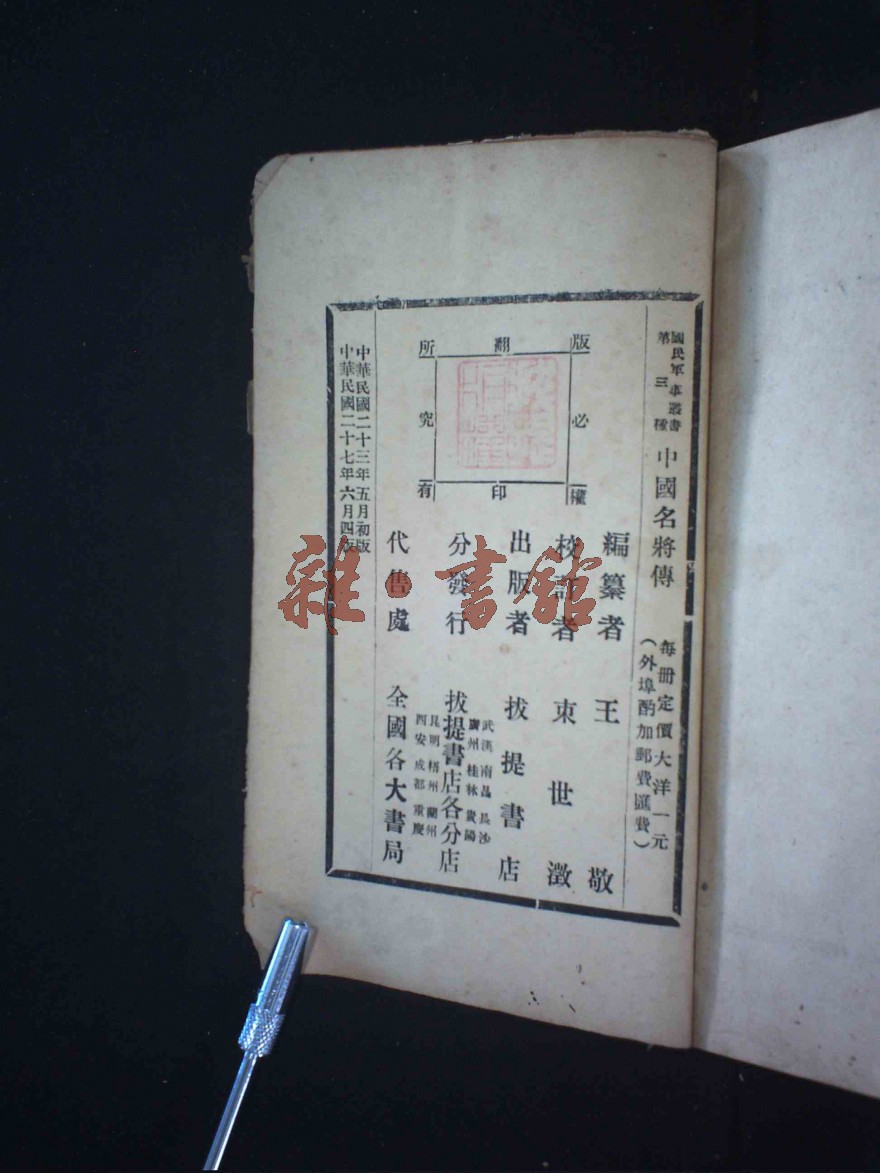 國民軍事叢書
第三種
中國名將傳
每冊定價大洋一元
(外埠酌加郵費匯費)
版權所有
翻印必究
編纂者 王敬
校訂者 束世澂
出版者 拔提書店
分發行 拔提書店各分店
武漢 南昌 長沙
廣州 桂林 貴陽
昆明 梧州 蘭州
西安 成都 重慶
代售處 全國各大書局
中華民國二十三年五月初版
中華民國二十七年六月四版
雜·書館